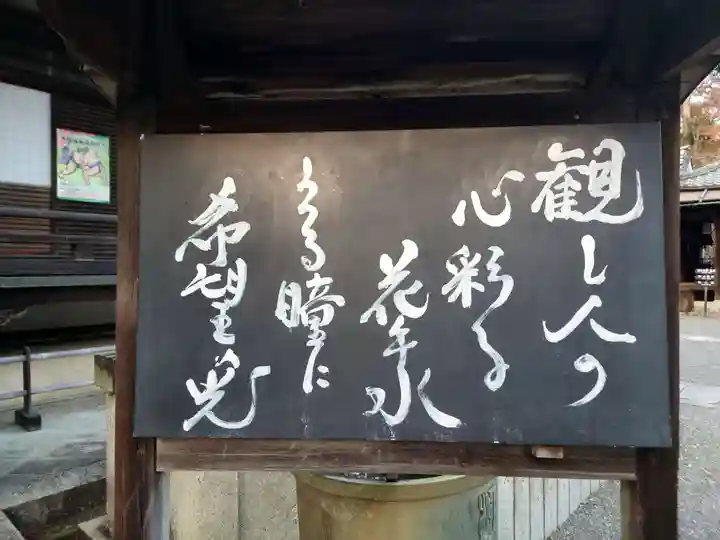 観し人の
心彩る
花手水
うつる瞳に
希望光